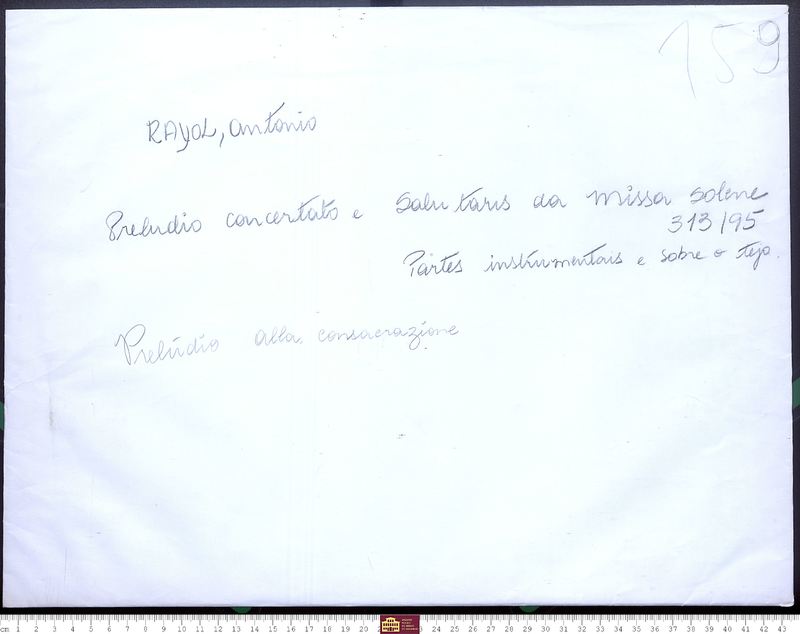 159
RAYOL, Antonio
Preludio concertato e Salutaris da Missa Solene
313/95
Partes instrumentais e sobre o Tejo.
Prelúdio alla consacrazione
cm 1 2 3 4 5 6 7 8 9 10 11 12 13 14 15 16 17 18 19 20 24 25 26 27 28 29 30 31 32 33 34 35 36 37 38 39 40 41 42 43